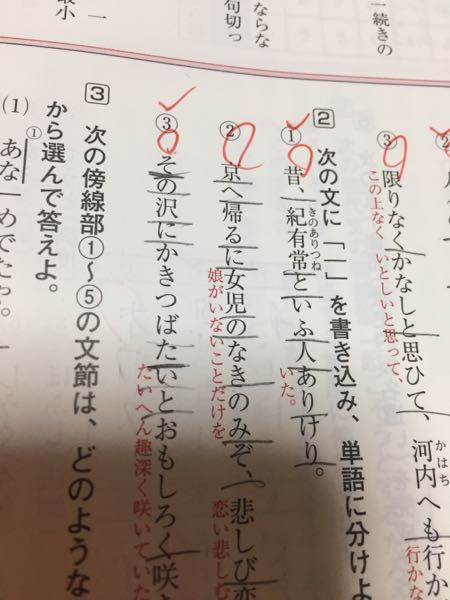 一続きの
ならな
句切っ
一
最小
かはち
③限りなくかなしと思ひて、河内へも行か
この上なく いとしいと思って、 行かな
2 次の文に「｜」を書き込み、単語に分けよ
きのありつね
①昔、紀有常といふ人ありけり。
いた。
②京へ帰るに女児のなきのみぞ、悲しび恋
娘がいないことだけを 恋い悲しむ
③その沢にかきつばたいとおもしろく咲き
たいへん趣深く咲いていた
3 次の傍線部①～⑤の文節は、どのような
から選んで答えよ。
(1) ①あな めでたや。